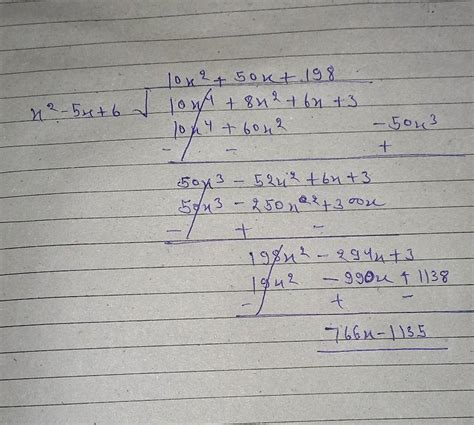 10x² + 50x + 198
x² - 5x + 6 √ 10x⁴ + 8x² + 6x + 3
10x⁴ + 60x² - 50x³
- - +
50x³ - 52x² + 6x + 3
50x³ - 250x² + 300x
- + -
198x² - 294x + 3
19x² - 990x + 1138
- + -
766x - 1135